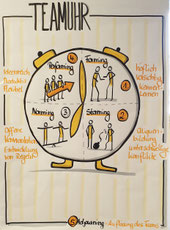 TEAMUHR
④
Performing
Forming
①
höflich
vorsichtig
Kennen-
Lernen
Ideenreich
Produktiv
Flexibel
Norming
③
Storming
②
Offene
Kommunikation
Entwicklung
von Regeln
Cliquen-
bildung
unterschwellige
Konflikte
⑤ Adjourning
Auflösung des Teams